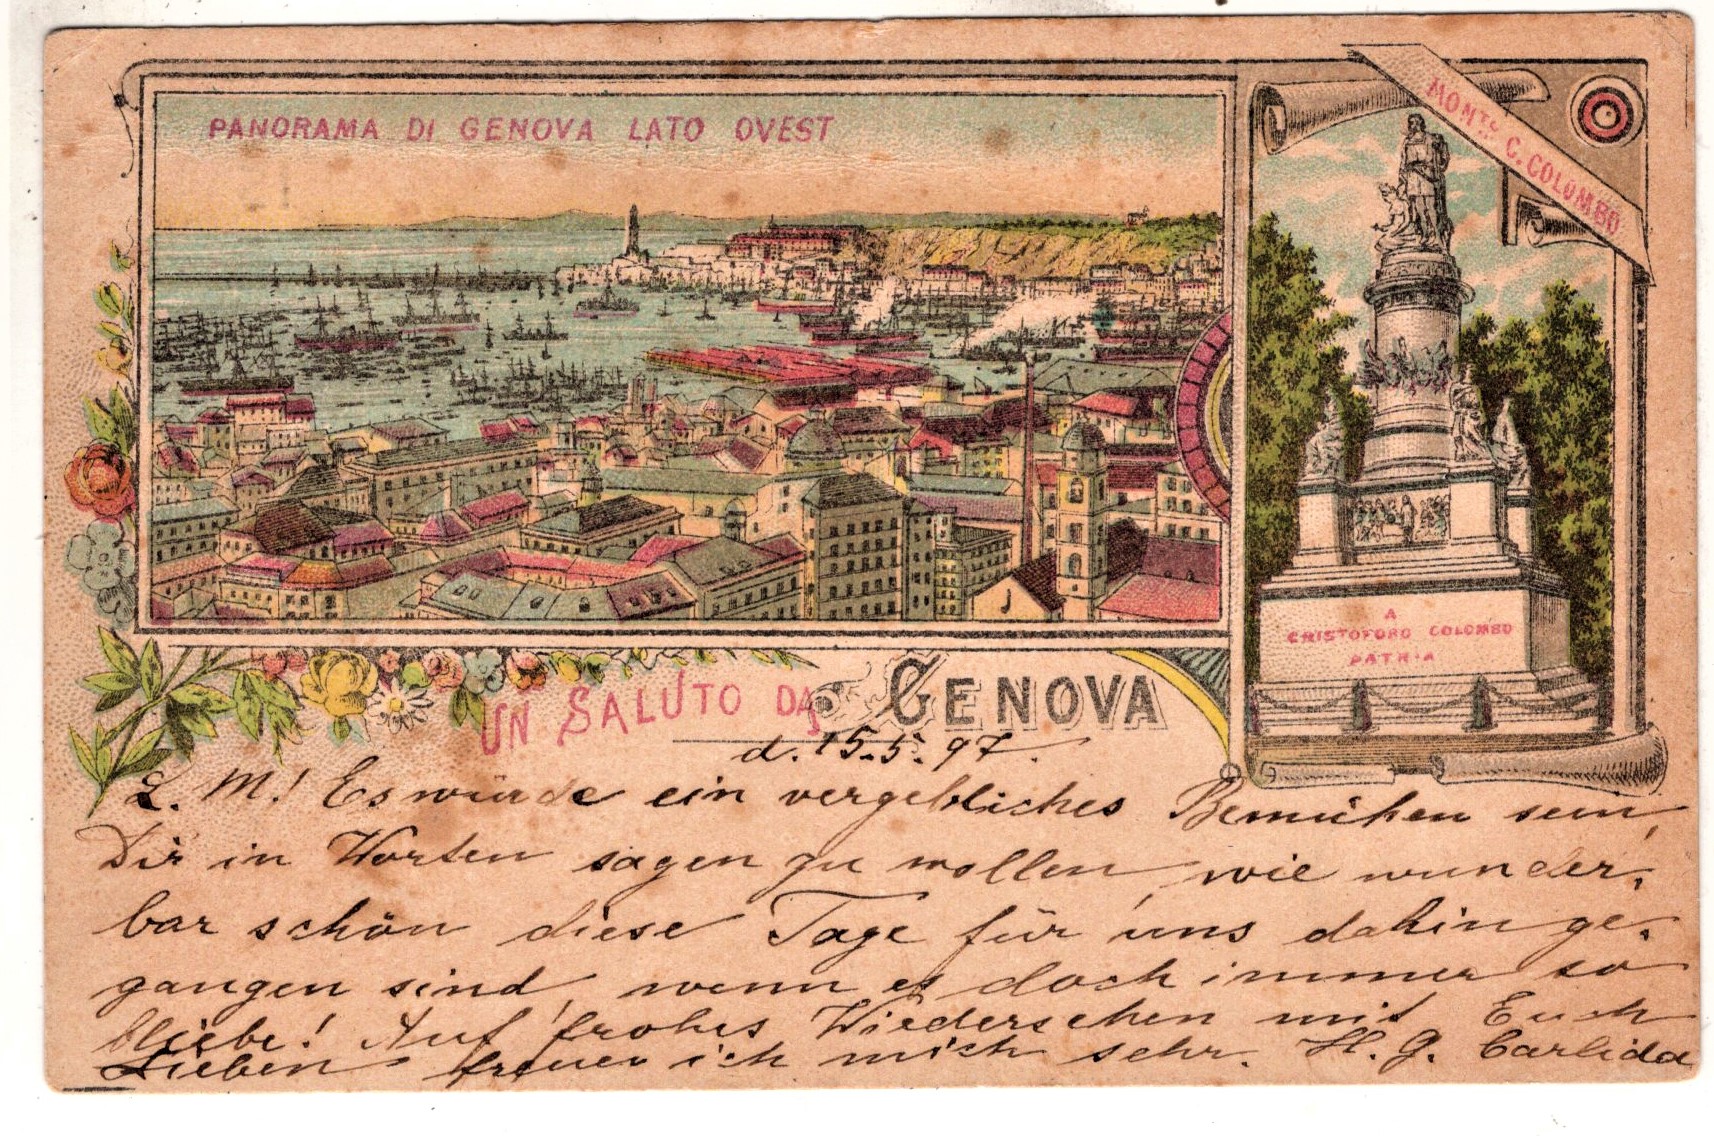 PANORAMA DI GENOVA LATO OVEST
MONTO C. COLOMBO
A
CRISTOFORO COLOMBO
PATRIA
UN SALUTO DA GENOVA
d. 15.5.97.
L. M.! Es würde ein vergebliches Bemühen sein,
Dir in Worten sagen zu wollen, wie wunder,
bar schön diese Tage für uns dahinge,
gangen sind, wenn es doch immer so
bliebe! Auf frohes Wiedersehen mit Euch
Lieben freue ich mich sehr. H. G. Carlida